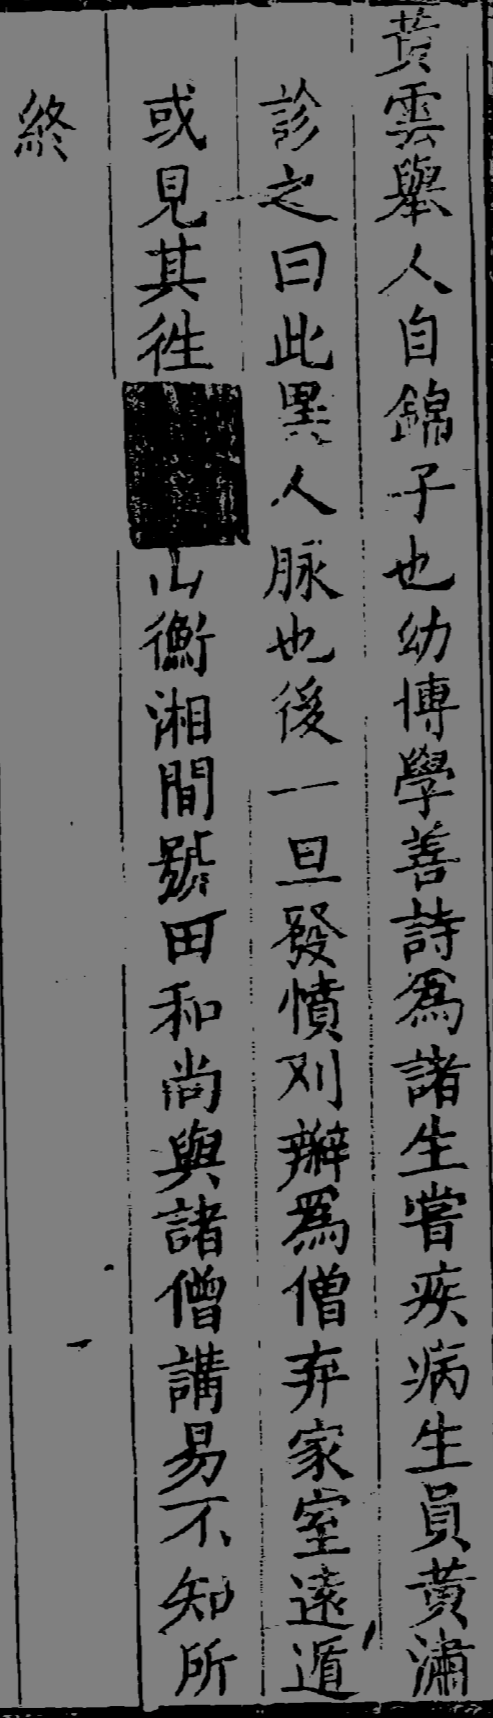 黄雲舉人自錦子也幼博學善詩爲諸生嘗疾病生員黄潚
診之曰此異人脉也後一旦發憤刈辮爲僧弃家室遠遁
或見其徃山衡湘間號田和尚與諸僧講易不知所
終